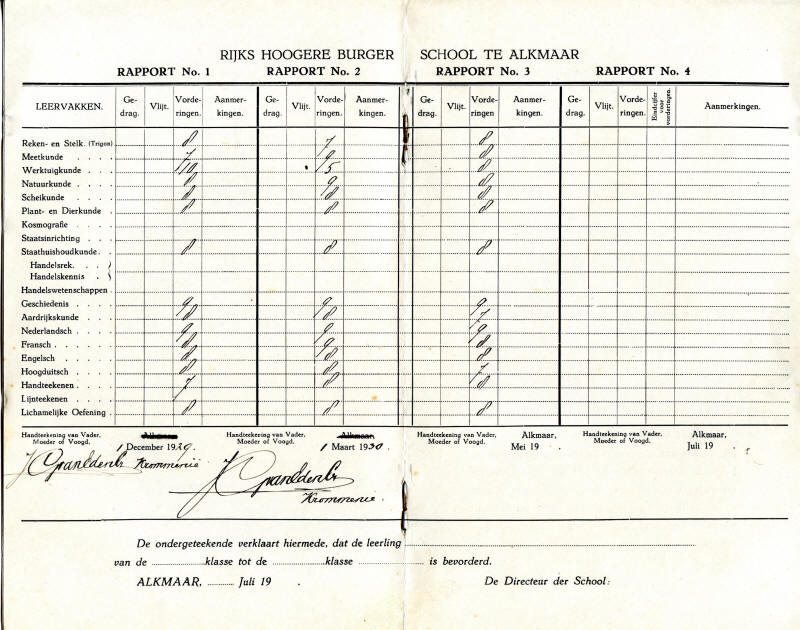 RIJKS HOOGERE BURGER SCHOOL TE ALKMAAR
RAPPORT No. 1 RAPPORT No. 2 RAPPORT No. 3 RAPPORT No. 4
LEERVAKKEN. Ge-drag. Vlijt. Vorde-ringen. Aanmer-kingen. Ge-drag. Vlijt. Vorde-ringen. Aanmer-kingen. Ge-drag. Vlijt. Vorde-ringen. Aanmer-kingen. Ge-drag. Vlijt. Vorde-ringen. Eindcijfer voor vorderingen. Aanmerkingen.
Reken- en Stelk. (Trigon) 8 7 8
Meetkunde . . . . 7 9 8
Werktuigkunde . . . 10 5 8
Natuurkunde . . . 8 9 8
Scheikunde . . . . 8 8 8
Plant- en Dierkunde . 8 8 8
Kosmografie . . . .
Staatsinrichting . . .
Staathuishoudkunde . 8 8 8
Handelsrek. . . }
Handelskennis . }
Handelswetenschappen .
Geschiedenis . . . . 9 9 9
Aardrijkskunde . . . 8 8 7
Nederlandsch . . . . 9 9 9
Fransch . . . . . 8 9 8
Engelsch . . . . 8 8 8
Hoogduitsch . . . . 8 8 7
Handteekenen . . . . 7 8 8
Lijnteekenen . . . .
Lichamelijke Oefening . 8 8 8
Handteekening van Vader, Moeder of Voogd. Alkmaar, 1 December 1929.
Handteekening van Vader, Moeder of Voogd. Alkmaar, 1 Maart 1930.
Handteekening van Vader, Moeder of Voogd. Alkmaar, Mei 19 .
Handteekening van Vader, Moeder of Voogd. Alkmaar, Juli 19 .
Krommenie
Krommenie.
De ondergeteekende verklaart hiermede, dat de leerling
van de klasse tot de klasse is bevorderd.
ALKMAAR, Juli 19 . De Directeur der School: